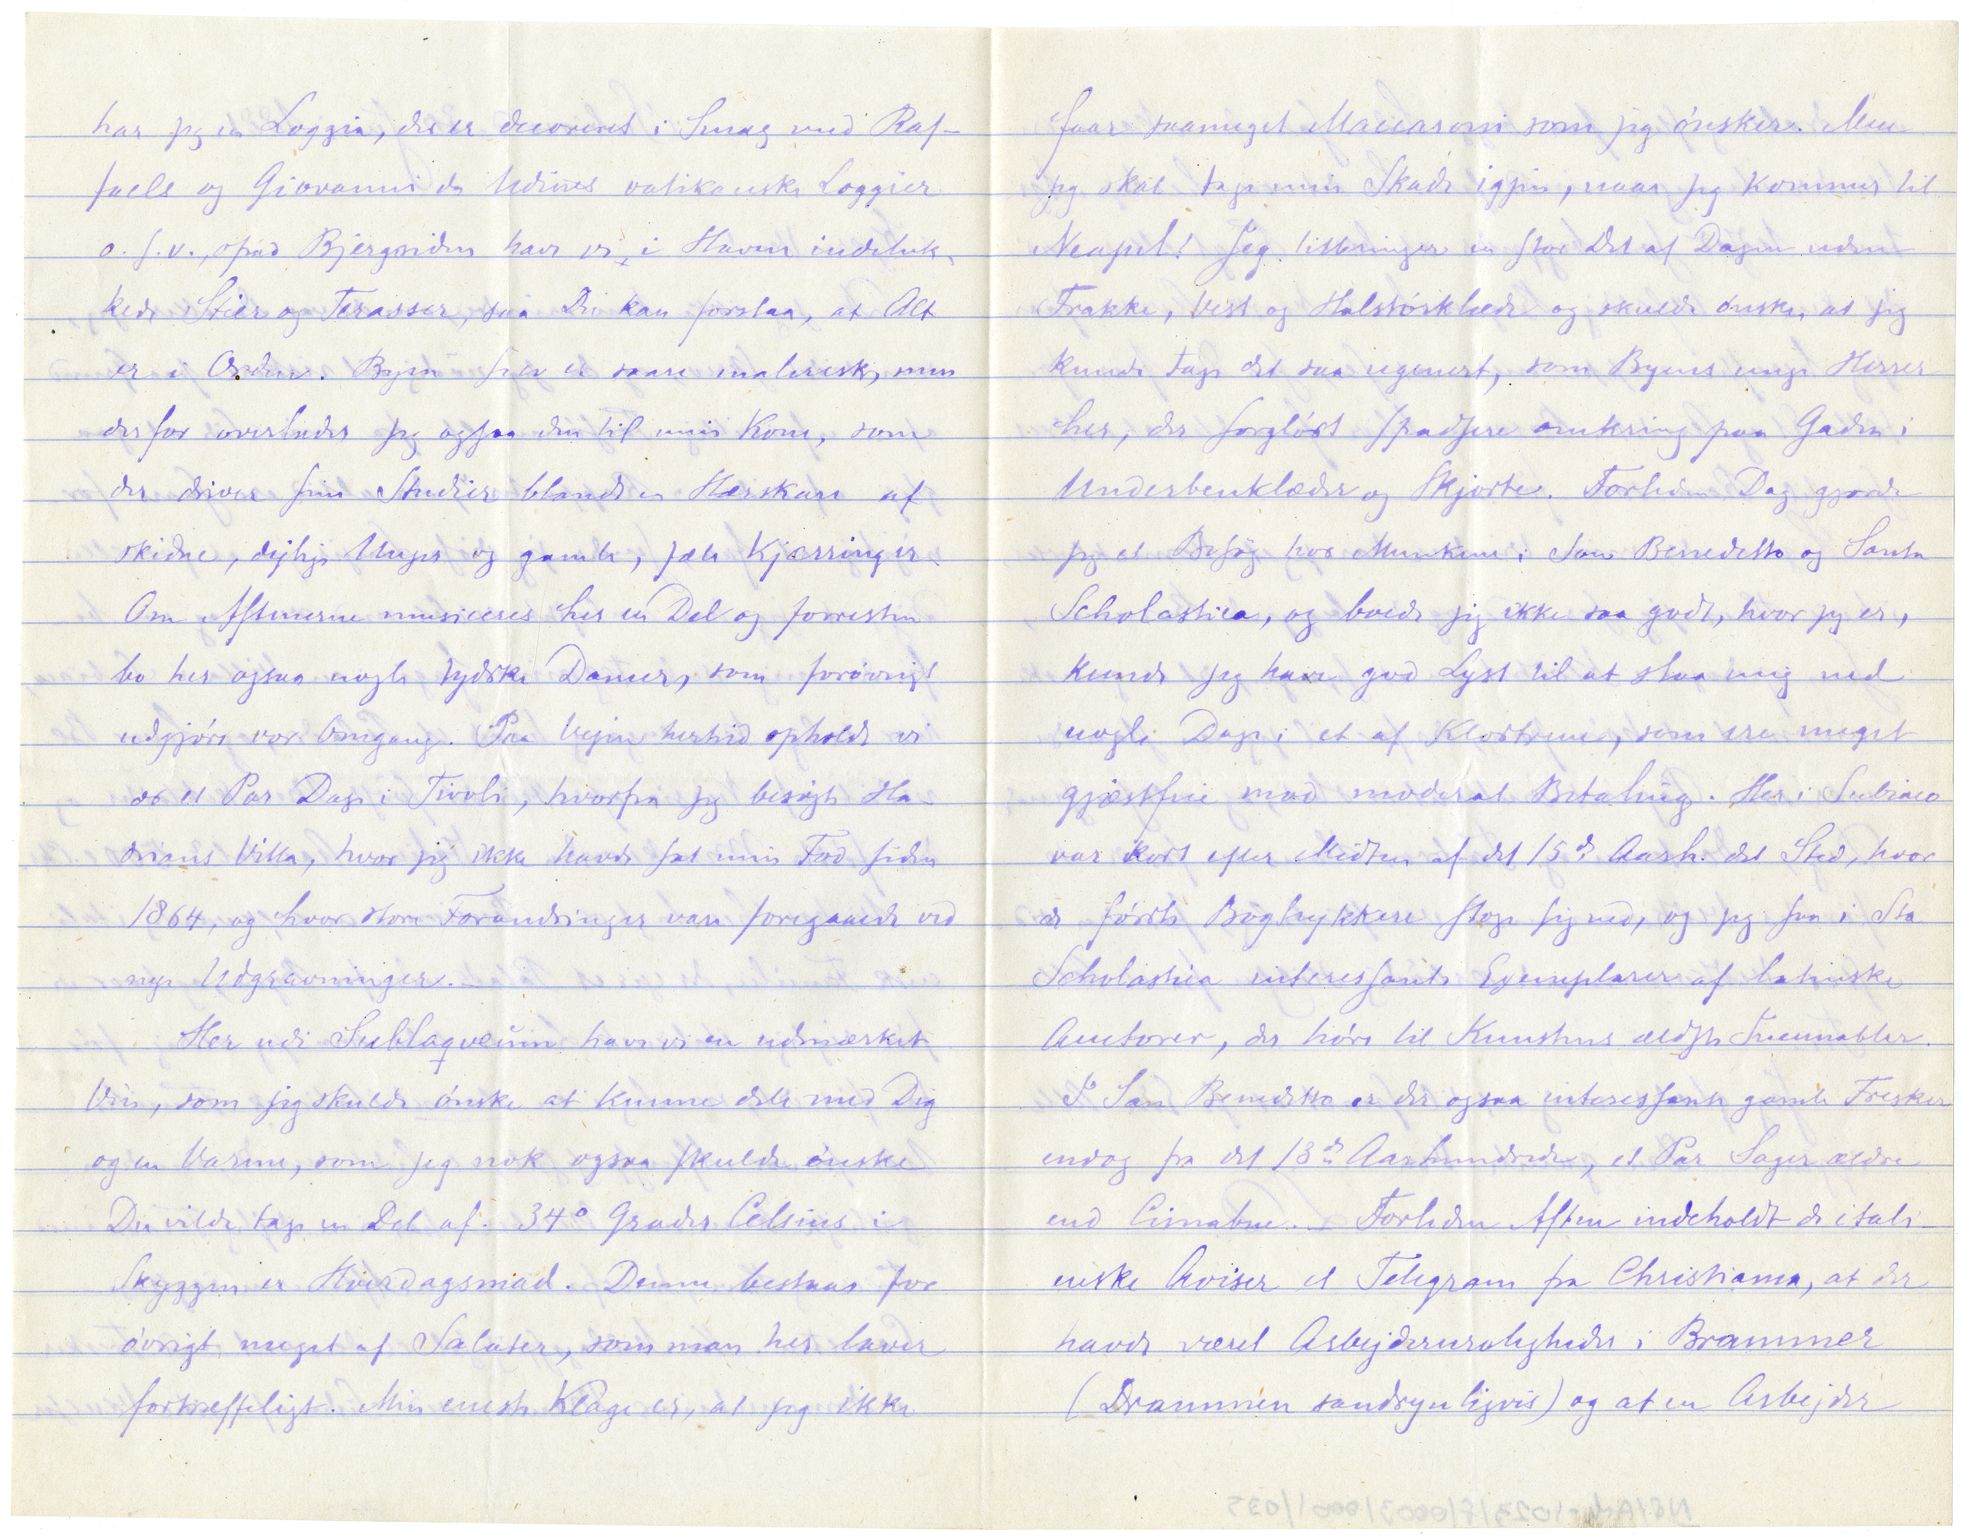 har jeg en Loggia, der er decoreret i Smag med Raf-
faels og Giovanni da Udines vatikanske Loggier
o. s. v., opad Bjergsiden have vi i Haven indeluk-
kede Stier og Terasser, saa Du kan forstaa, at Alt
er i Orden. Byen her er saare malerisk, men
derfor overlader jeg ogsaa den til min Kone, som
der driver sine Studier blandt en Hærskare af
skidne, dejlige Unger og gamle, fæle Kjærringer.
Om Aftnerne musiceres her en Del og forresten
bo her ogsaa nogle tydske Damer, som forøvrigt
udgjøre vor Omgang. Paa Vejen hertid opholdt vi
os et Par Dage i Tivoli, hvorfra jeg besøgte Ha-
drians Villa, hvor jeg ikke havde sat min Fod siden
1864, og hvor store Forandringer vare foregaaede ved
nye Udgravninger.
Her ude i Sublaqveum have vi en udmærket
Vin, som jeg skulde ønske at kunne dele med Dig
og en Varme, som jeg nok ogsaa skulde ønske
Du vilde tage en Del af. 34° Grader Celsius i
Skyggen er Hverdagsmad. Denne bestaar for
øvrigt meget af Salater, som man her laver
fortræffeligt. Min eneste Klage er, at jeg ikke
faar saameget Maccaroni som jeg ønsker. Men
jeg skal tage min Skade igjen, naar jeg kommer til
Neapel! Jeg tilbringer en stor Del af Dagen uden
Frakke, Vest og Halstørklæde og skulde ønske, at jeg
kunde tage det saa ugenert, som Byens unge Herrer
her, der sorgløst spadsere omkring paa Gaden i
Underbenklæder og Skjorte. Forleden Dag gjorde
jeg et Besøg hos Munkene i San Benedetto og Santa
Scholastica, og boede jeg ikke saa godt, hvor jeg er,
kunde jeg have god Lyst til at slaa mig ned
nogle Dage i et af Klostrene, som ere meget
gjæstfrie mod moderat Betaling. Her i Subiaco
var kort efter Midten af det 15de Aarh. det Sted, hvor
de første Bogtrykkere sloge sig ned, og jeg saa i Sta
Scholastica interessante Exemplarer af latinske
Auctorer, der høre til Kunstens ældste Incunabler.
I San Benedetto er der ogsaa interessante gamle Fresker
endog fra det 13de Aarhundrede, et Par Sager ældre
end Cimabue. – Forleden Aften indeholdt de itali-
enske Aviser et Telegram fra Christiania, at der
havde været Arbejderuroligheder i Brammer
(Drammen sandsynligvis) og at en Arbejder